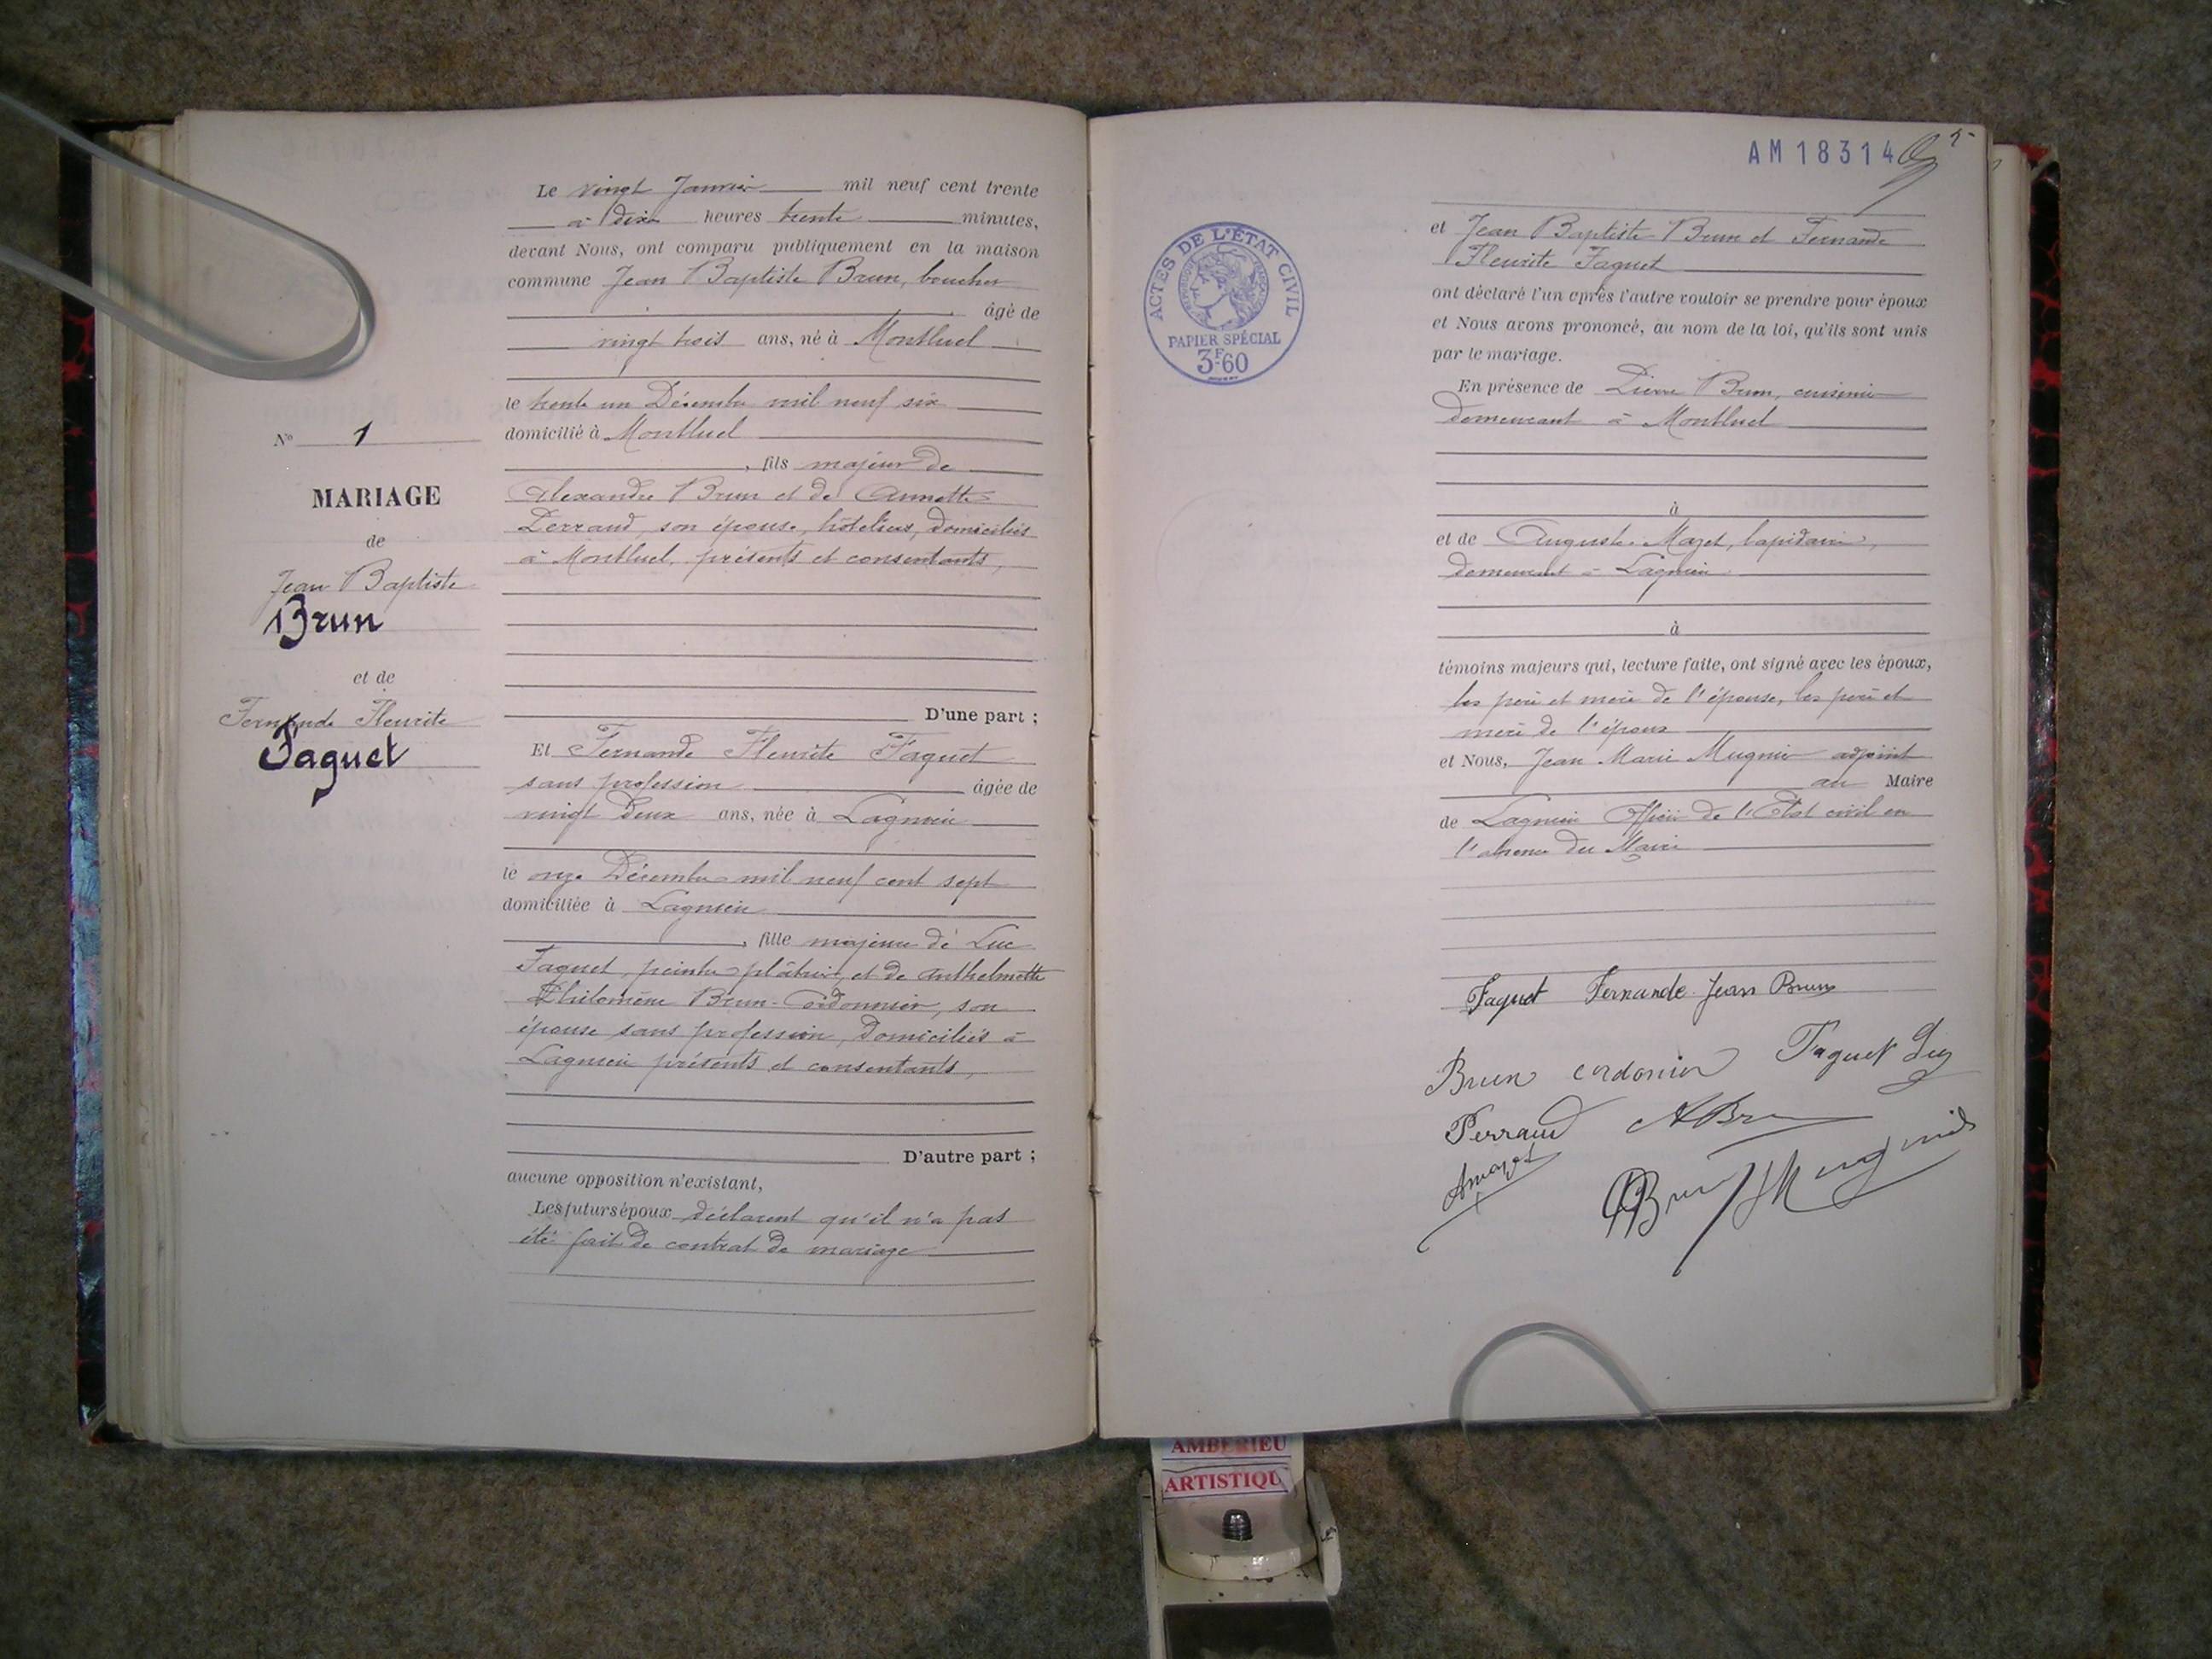 Le vingt Janvier mil neuf cent trente
à dix heures trente minutes,
devant Nous, ont comparu publiquement en la maison
commune Jean Baptiste Brun, boucher
âgé de
vingt trois ans, né à Montluel
le trente un Décembre mil neuf six
domicilié à Montluel
, fils majeur de
Alexandre Brun et de Annette
Perraud, son épouse, hôteliers, domiciliés
à Montluel, présents et consentants,
D'une part ;
Et Fernande Fleurite Faguet
sans profession âgée de
vingt deux ans, née à Lagnieu
le onze Décembre mil neuf cent sept
domiciliée à Lagnieu
, fille majeure de Luc
Faguet, peintre plâtrier, et de Anthelmette
Philomène Brun-Cordonnier, son
épouse sans profession, domiciliés à
Lagnieu présents et consentants,
D'autre part ;
aucune opposition n'existant,
Les futurs époux déclarent qu'il n'a pas
été fait de contrat de mariage
N° 1
MARIAGE
de
Jean Baptiste
Brun
et de
Fernande Fleurite
Faguet
AM18314
ACTES DE L'ÉTAT CIVIL
RÉPUBLIQUE FRANÇAISE
PAPIER SPÉCIAL
3F60
et Jean Baptiste Brun et Fernande
Fleurite Faguet
ont déclaré l'un après l'autre vouloir se prendre pour époux
et Nous avons prononcé, au nom de la loi, qu'ils sont unis
par le mariage.
En présence de Pierre Brun, cuisinier
demeurant à Montluel
à
et de Auguste Mazet, lapidaire,
demeurant à Lagnieu
à
témoins majeurs qui, lecture faite, ont signé avec les époux,
les père et mère de l'épouse, les père et
mère de l'époux
et Nous, Jean Marie Mugnier adjoint
au Maire
de Lagnieu Officier de l'Etat civil en
l'absence du Maire
Faguet Fernande Jean Brun
Brun cordonier Faguet Luc
Perraud ABrun
Amazet
Brun JMugnier
AMBERIEU
ARTISTIQU